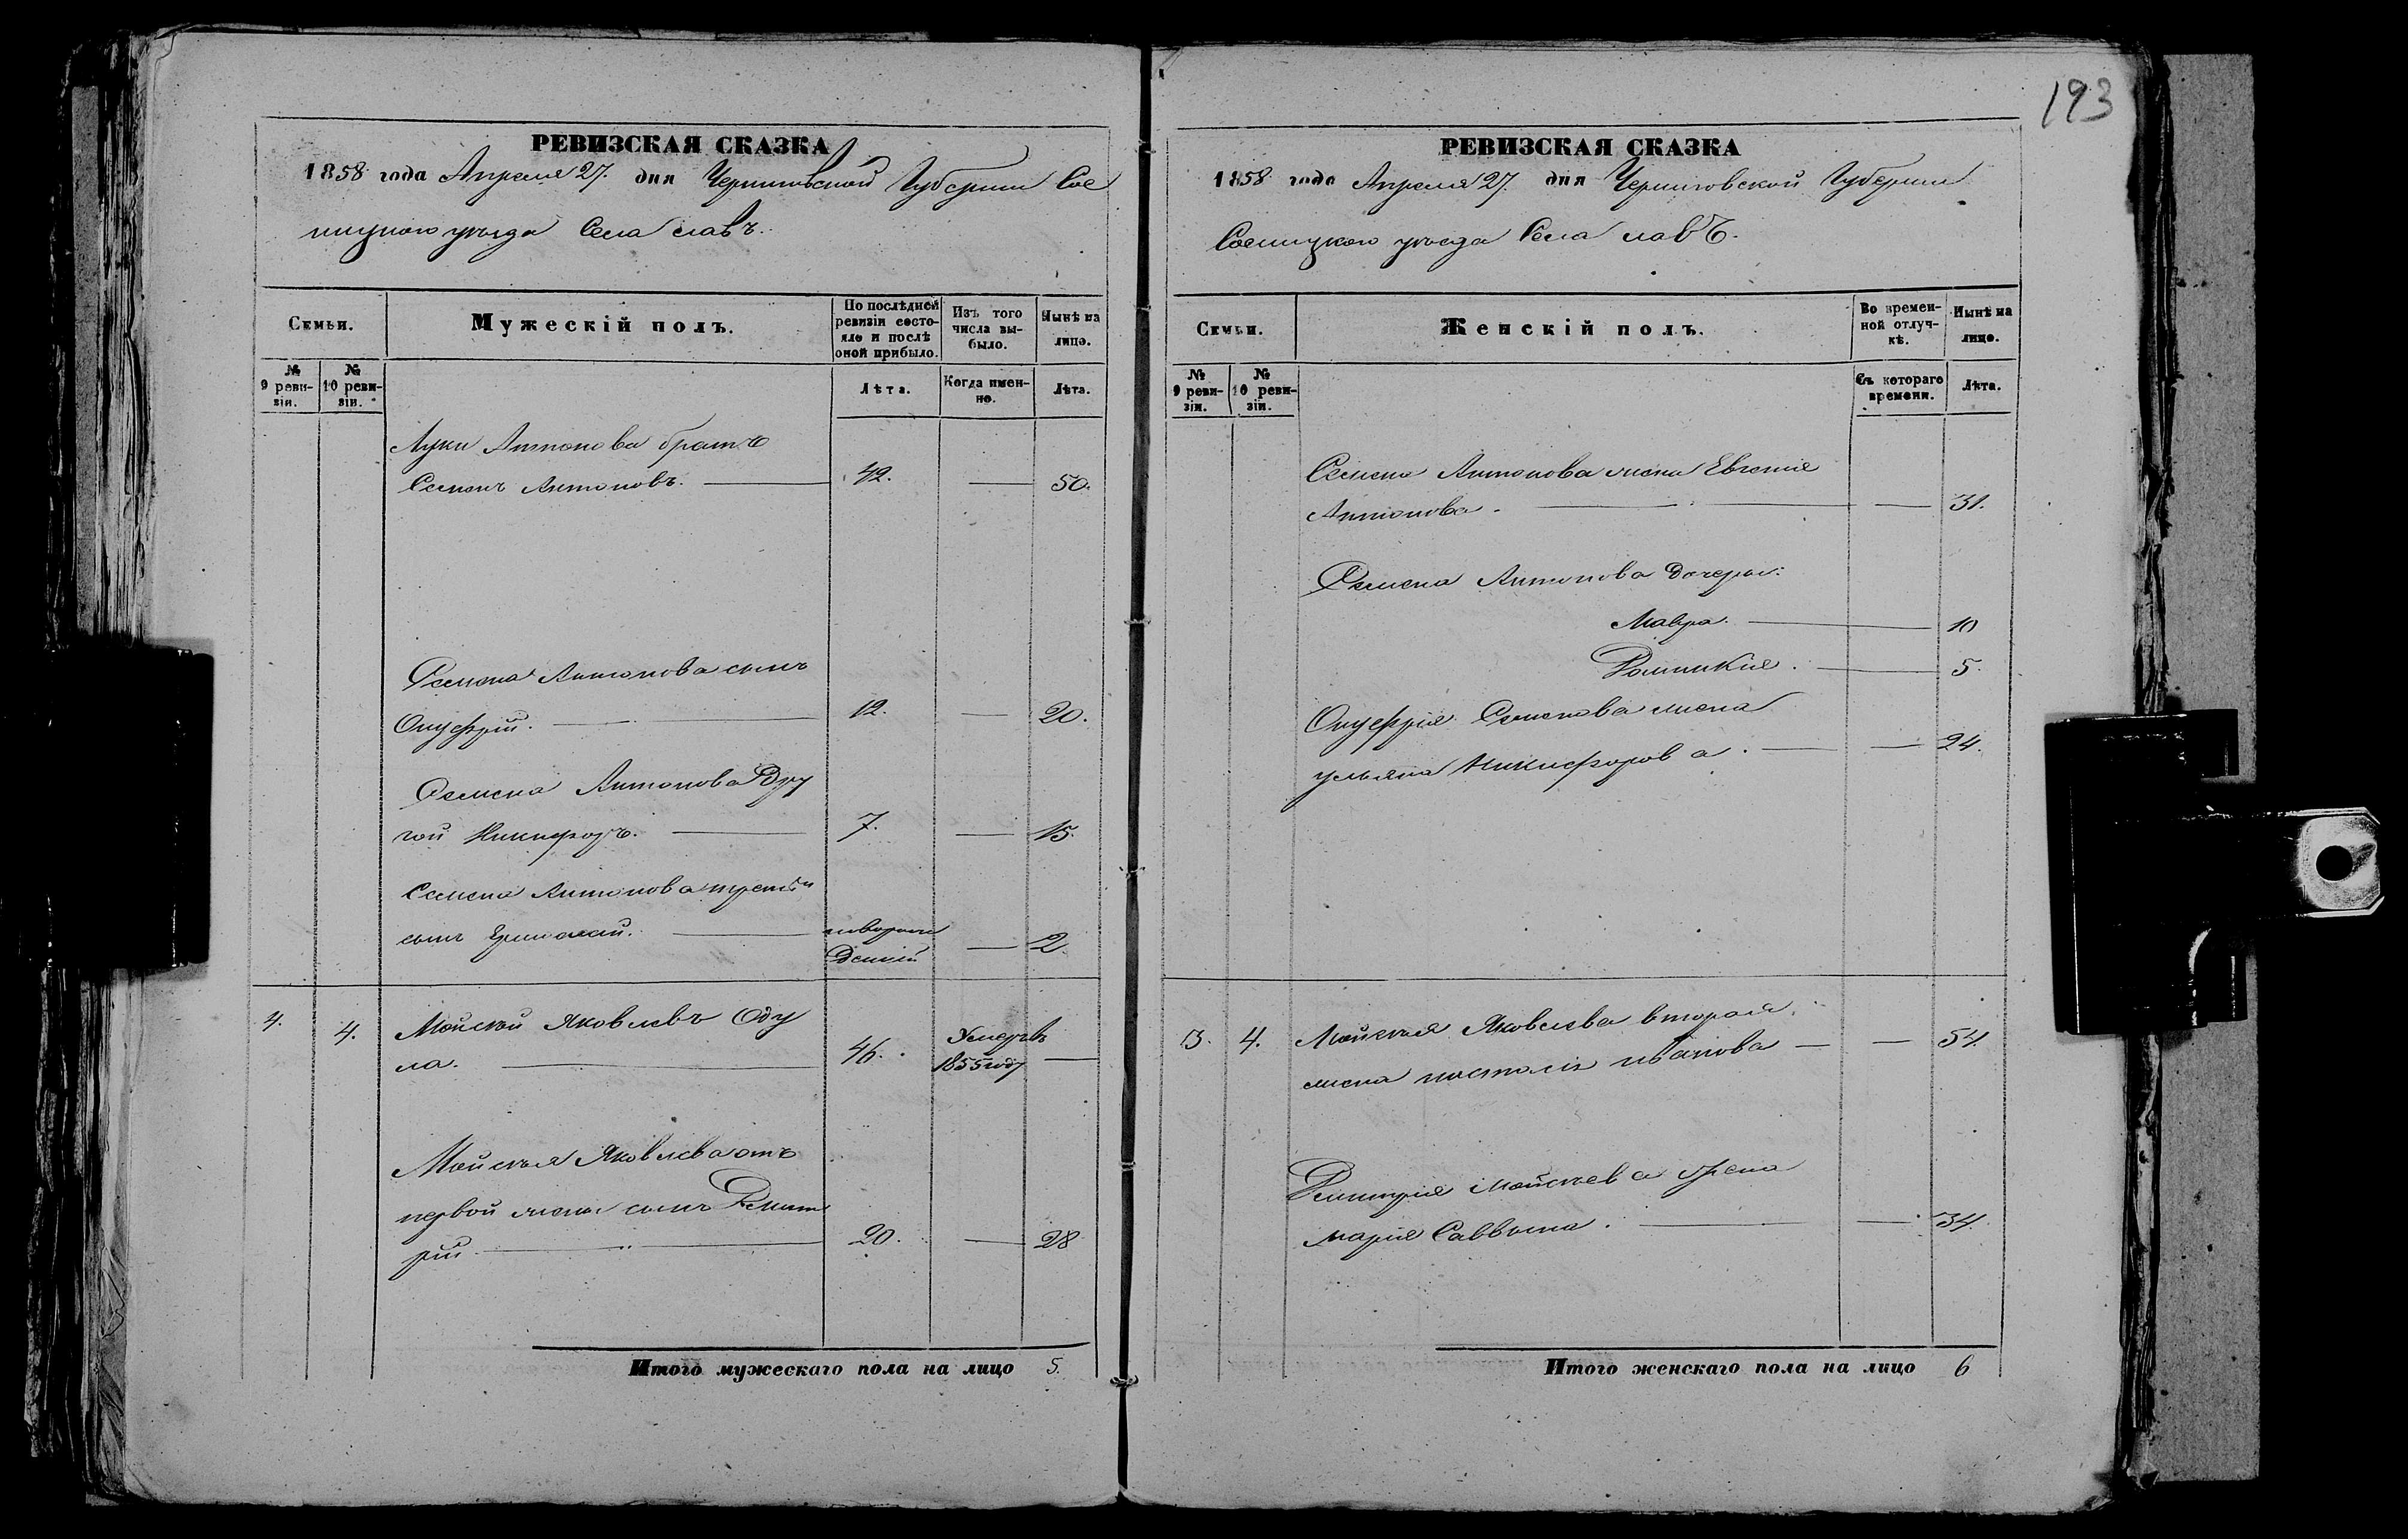 193
РЕВИЗСКАЯ СКАЗКА
1858 года Апреля 27. дня Черниговской Губернии Сос
ницкого уѣзда Села
Семьи.
Мужескій полъ.
По послѣдней ревизіи состояло и послѣ оной прибыло.
Изъ того числа выбыло.
Нынѣ на лицо.
№ 9 ревизіи.
№ 10 ревизіи.
Лѣта.
Когда именно.
Лѣта.
Луки Антонова братъ
Семенъ Антоновъ. 42. — 50.
Семена Антонова сынъ
Онуфрій. 12. — 20.
Семена Антонова дру
гой Никифоръ. 7. — 15.
Семена Антонова третій
сынъ новорож
денный — 2.
4. 4. Мойсей Яковлевъ Оду
ла. 46. Умеръ в 1855 году —
Мойсея Яковлева отъ
первой жены сынъ Димит
рій 20. — 28
Итого мужескаго пола на лицо 5.
РЕВИЗСКАЯ СКАЗКА
1858 года Апреля 27. дня Черниговской Губернии
Сосницкого уѣзда Села
Семьи.
Женскій полъ.
Во временной отлучкѣ.
Нынѣ на лицо.
№ 9 ревизіи.
№ 10 ревизіи.
Съ котораго времени.
Лѣта.
Семена Антонова жена Евгения
Антонова. — 31.
Семена Антонова дочери:
Мавра. 10
Домникия. 5.
Онуфрия Семенова жена
Ульяна Никифорова. — 24.
3. 4. Мойсея Яковлева вторая
жена Иванова — 54.
Димитрия Мойсеева жена
Мария Саввина. — 34.
Итого женскаго пола на лицо 6